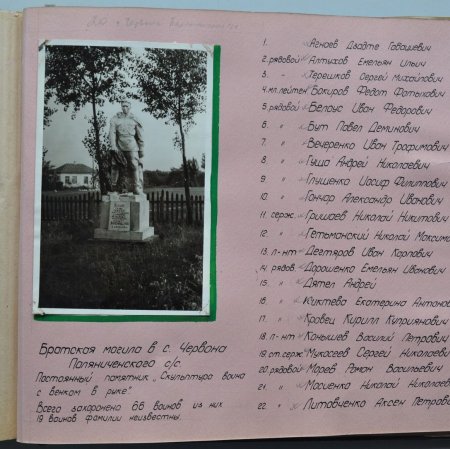 Братская могила в с. Червона
Паляниченского с/с.
Постоянный памятник „Скульптура воина
с венком в руке".
Всего захоронено 66 воинов из них
19 воинов фамилии неизвестны.
1. Агнаев Дзадте Гавашевич
2. рядовой Алтухов Емельян Ильич
3. - Терешков Сергей Михайлович
4. мл. лейтен Бакиров Федот Фатыхович
5. рядовой Белоус Иван Федорович
6. " Бут Павел Деминович
7. " Вечеренко Иван Трофимович
8. " Гуша Андрей Николаевич
9. " Глущенко Иосиф Филиппович
10. " Гончар Александр Иванович
11. серж. Гришаев Николай Никитович
12. " Гетьманский Николай Максимо
13. л-нт Дегтяров Иван Карпович
14. рядов. Дорошенко Емельян Иванович
15. " Дятел Андрей
16. " Куктева Екатерина Антонов
17. " Кравец Кирилл Куприянович
18. л-нт Конышев Василий Петрович
19. ст. серж. Мукасеев Сергей Николаевич
20. рядовой Морев Роман Васильевич
21. " Мосиенко Николай Николае
22. " Литовченко Аксен Петрови